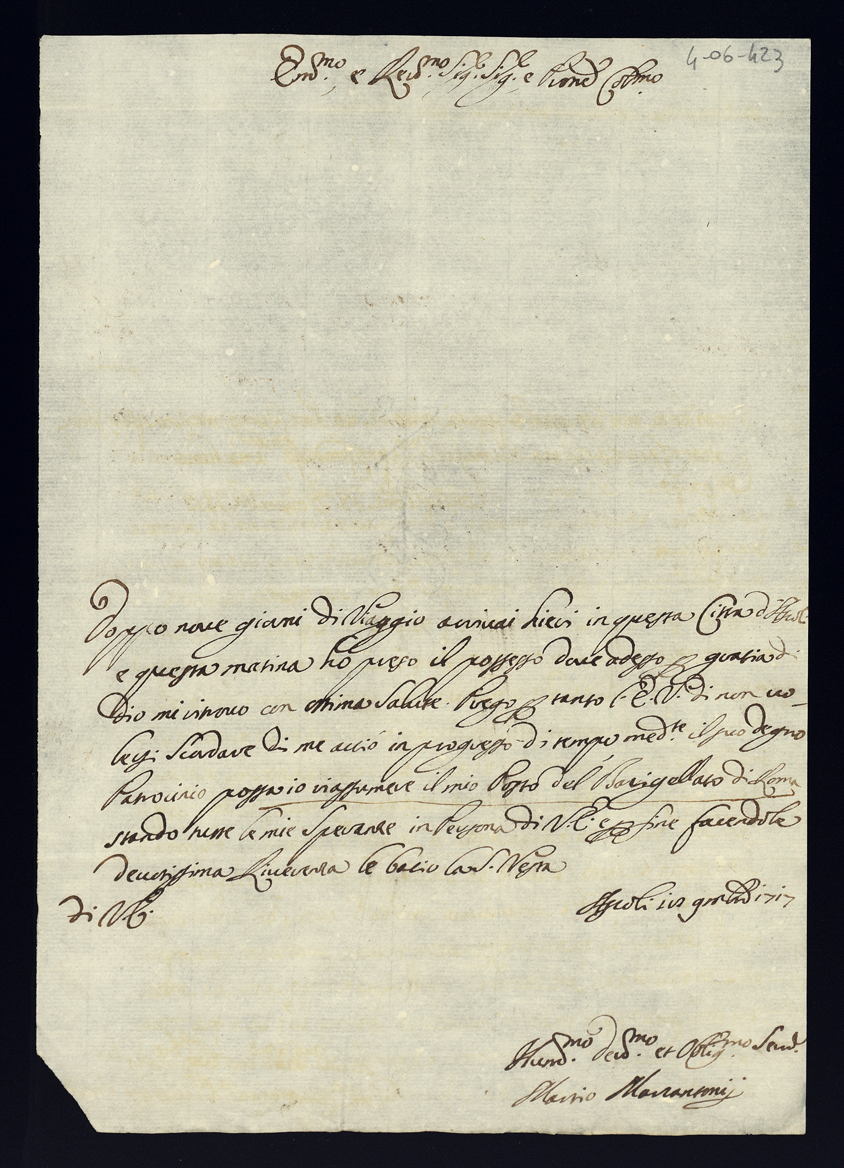 4-06-423
Em.mo e Rev.mo Sig.r Sig.r e Pron Col.mo
Doppo nove giorni di Viaggio arrivai hieri in questa Città d'Ascoli
e questa matina hò preso il possesso dove adesso p gratia di
Dio mi ritrovo con ottima salute. Prego p tanto l'E.V. di non vo-
lersi scordare di me acciò in progresso di tempo med.te il suo degno
Patrocinio possa io riassumere il mio Posto del Barigellato di Roma
stando tutte le mie speranze in Persona di V.E. e p fine facendole
devotissima Riverenza le bacio la S. Vesta
di V.E.
Ascoli 1717
Hum.mo Dev.mo et Oblig.mo Serv.
Marcantonij